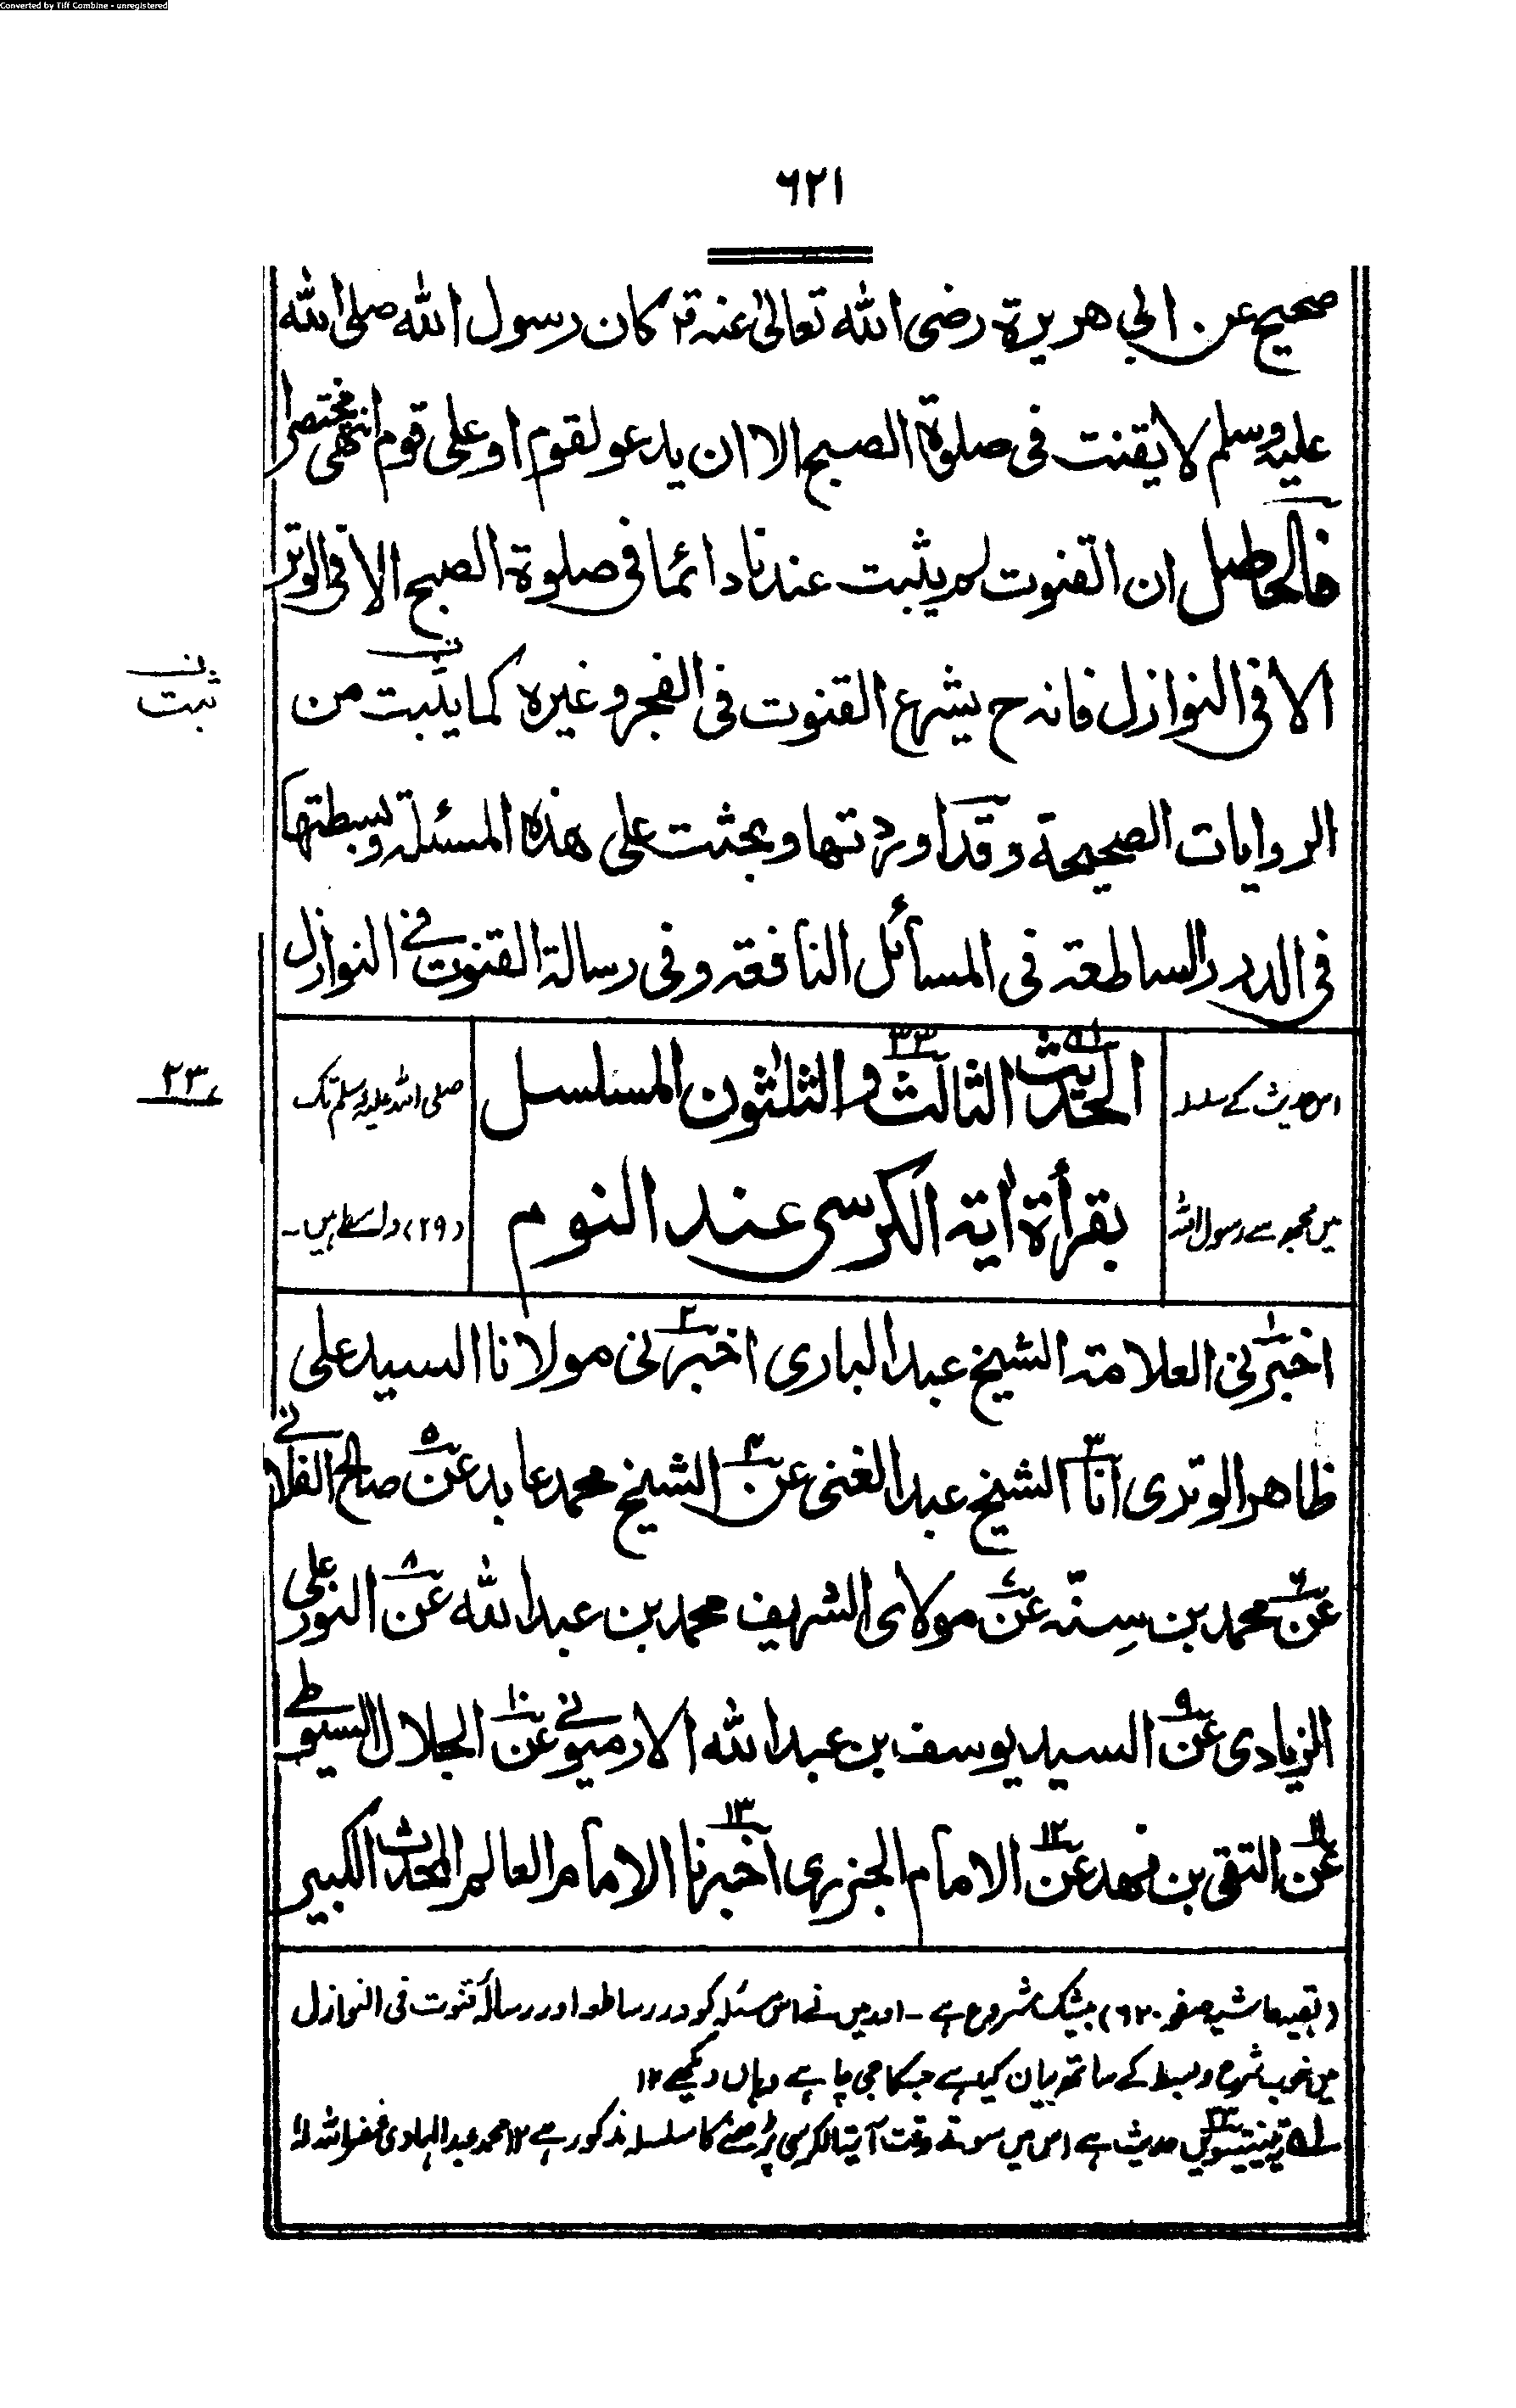 Converted by Tiff Combine - unregistered
٦٢١
صحيح عن ابي هريرة رضى الله تعالىٰ عنه قا كان رسول الله صلى الله
عليه وسلم لا يقنت فى صلوة الصبح الا ان يدعو لقوم او على قوم انتهى مختصرا
فالحاصل ان القنوت لم يثبت عندنا دائما فى صلوة الصبح الا فى الوتر
الا فى النوازل فانه ح يشرع القنوت فى الفجر وغيره كما يثبت من
ثبت
الروايات الصحيحة وقد اوردتها وبحثت على هذه المسئلة وبسطتها
فى الدرر الساطعة فى المسائل النافعة وفى رسالة القنوت فى النوازل
اس حديث كے سلسلہ
میں مجھ سے رسول اللہ
الحديث الثالث والثلٰثون المسلسل
بقرأة اٰية الكرسى عند النوم
صلی اللہ علیہ وسلم تک
(٢٩) واسطے ہیں۔
٢٣
اخبرنى العلامة الشيخ عبد البارى اخبرنى مولانا السيد على
ظاهر الوترى انا الشيخ عبد الغنى عن الشيخ محمد عابد عن صالح الفلانى
عن محمد بن سِنّة عن مولاى الشريف محمد بن عبد الله عن النور على
الزيادى عن السيد يوسف بن عبد الله الارميونى عن الجلال السيوطى
عن التقى بن فهد عن الامام الجزرى اخبرنا الامام العالم المحدث الكبير
(بقیہ حاشیہ صفحہ ٦٢٠) بیشک مشروع ہے ۔ اور میں نے اس مسئلہ کو درر ساطعہ اور رسالۂ قنوت فی النوازل
میں خوب شرح و بسط کے ساتھ بیان کیا ہے جسکا جی چاہے وہاں دیکھے ١٢
لہ تینتیسویں حدیث ہے اس میں سوتے وقت آیۃ الکرسی پڑھنے کا سلسلہ مذکور ہے ١٢ محمد عبد الہادی غفر اللہ لہ